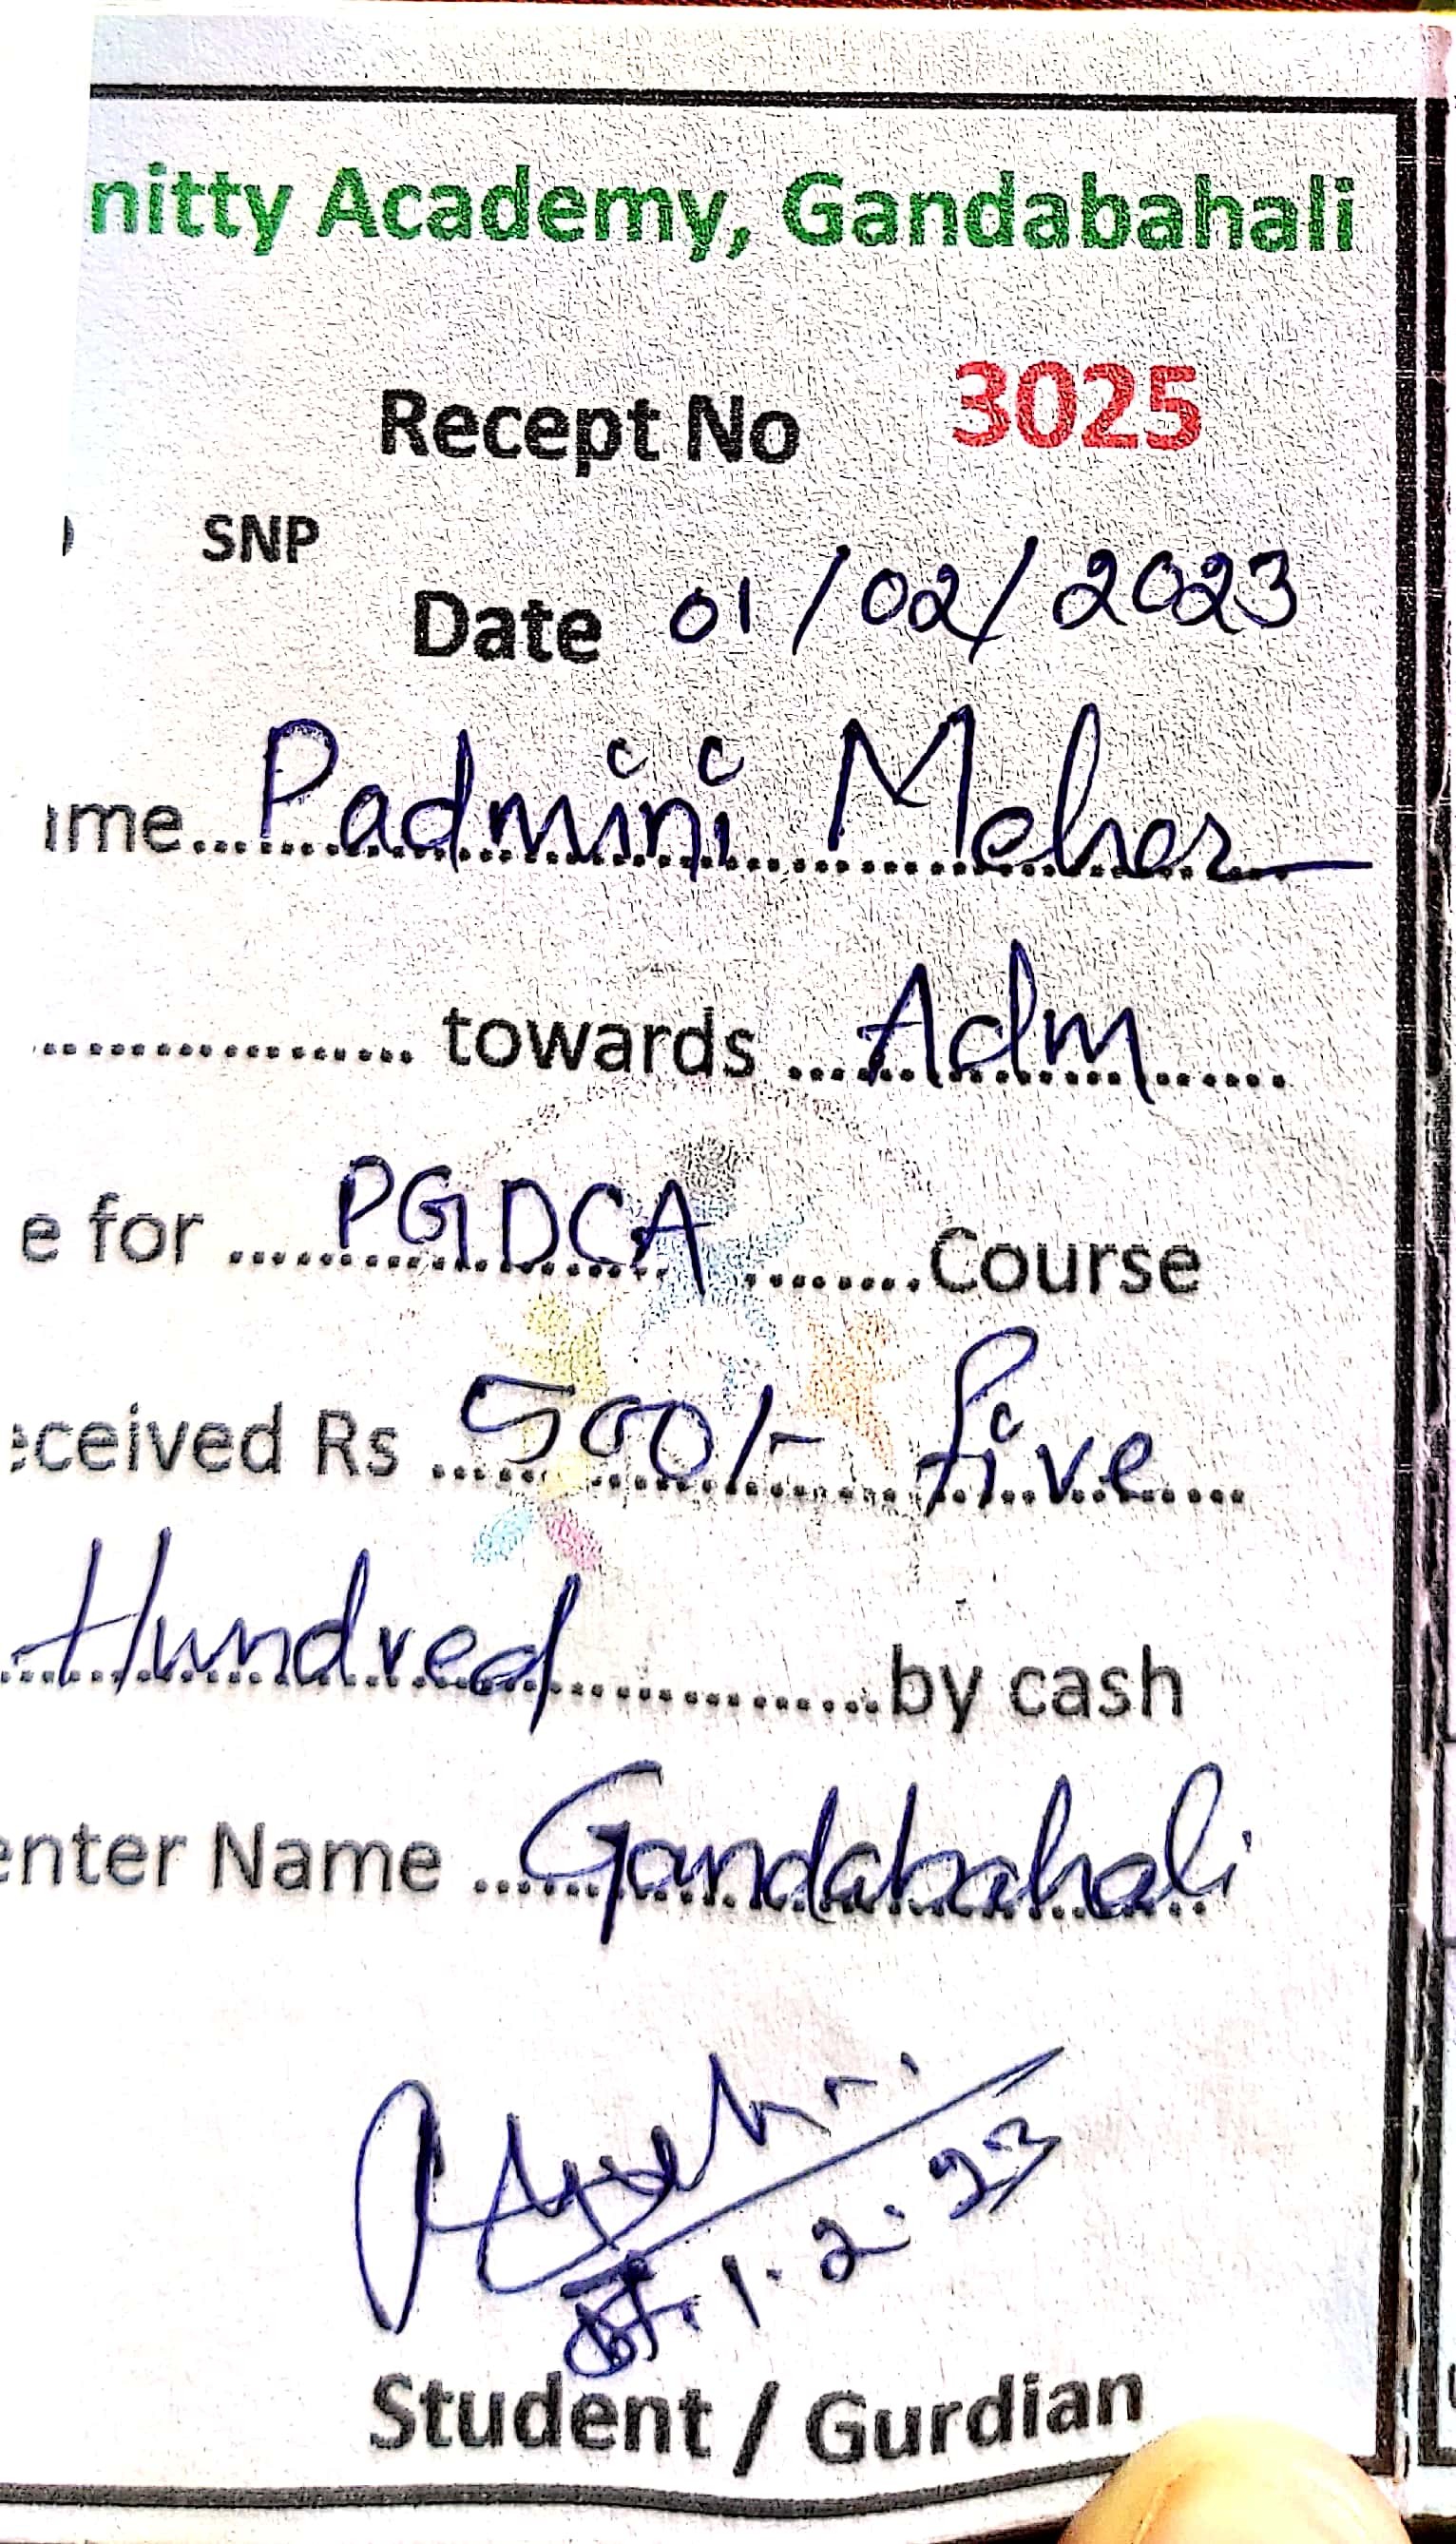 nitty Academy, Gandabahali
Recept No 3025
SNP
Date 01/02/2023
ime... Padmini Meher
.................. towards ... Adm ......
e for ... PGDCA ........ Course
eceived Rs ... 500/- five ...
... Hundred ............... by cash
enter Name ... Gandabahali
1.2.23
Student / Gurdian